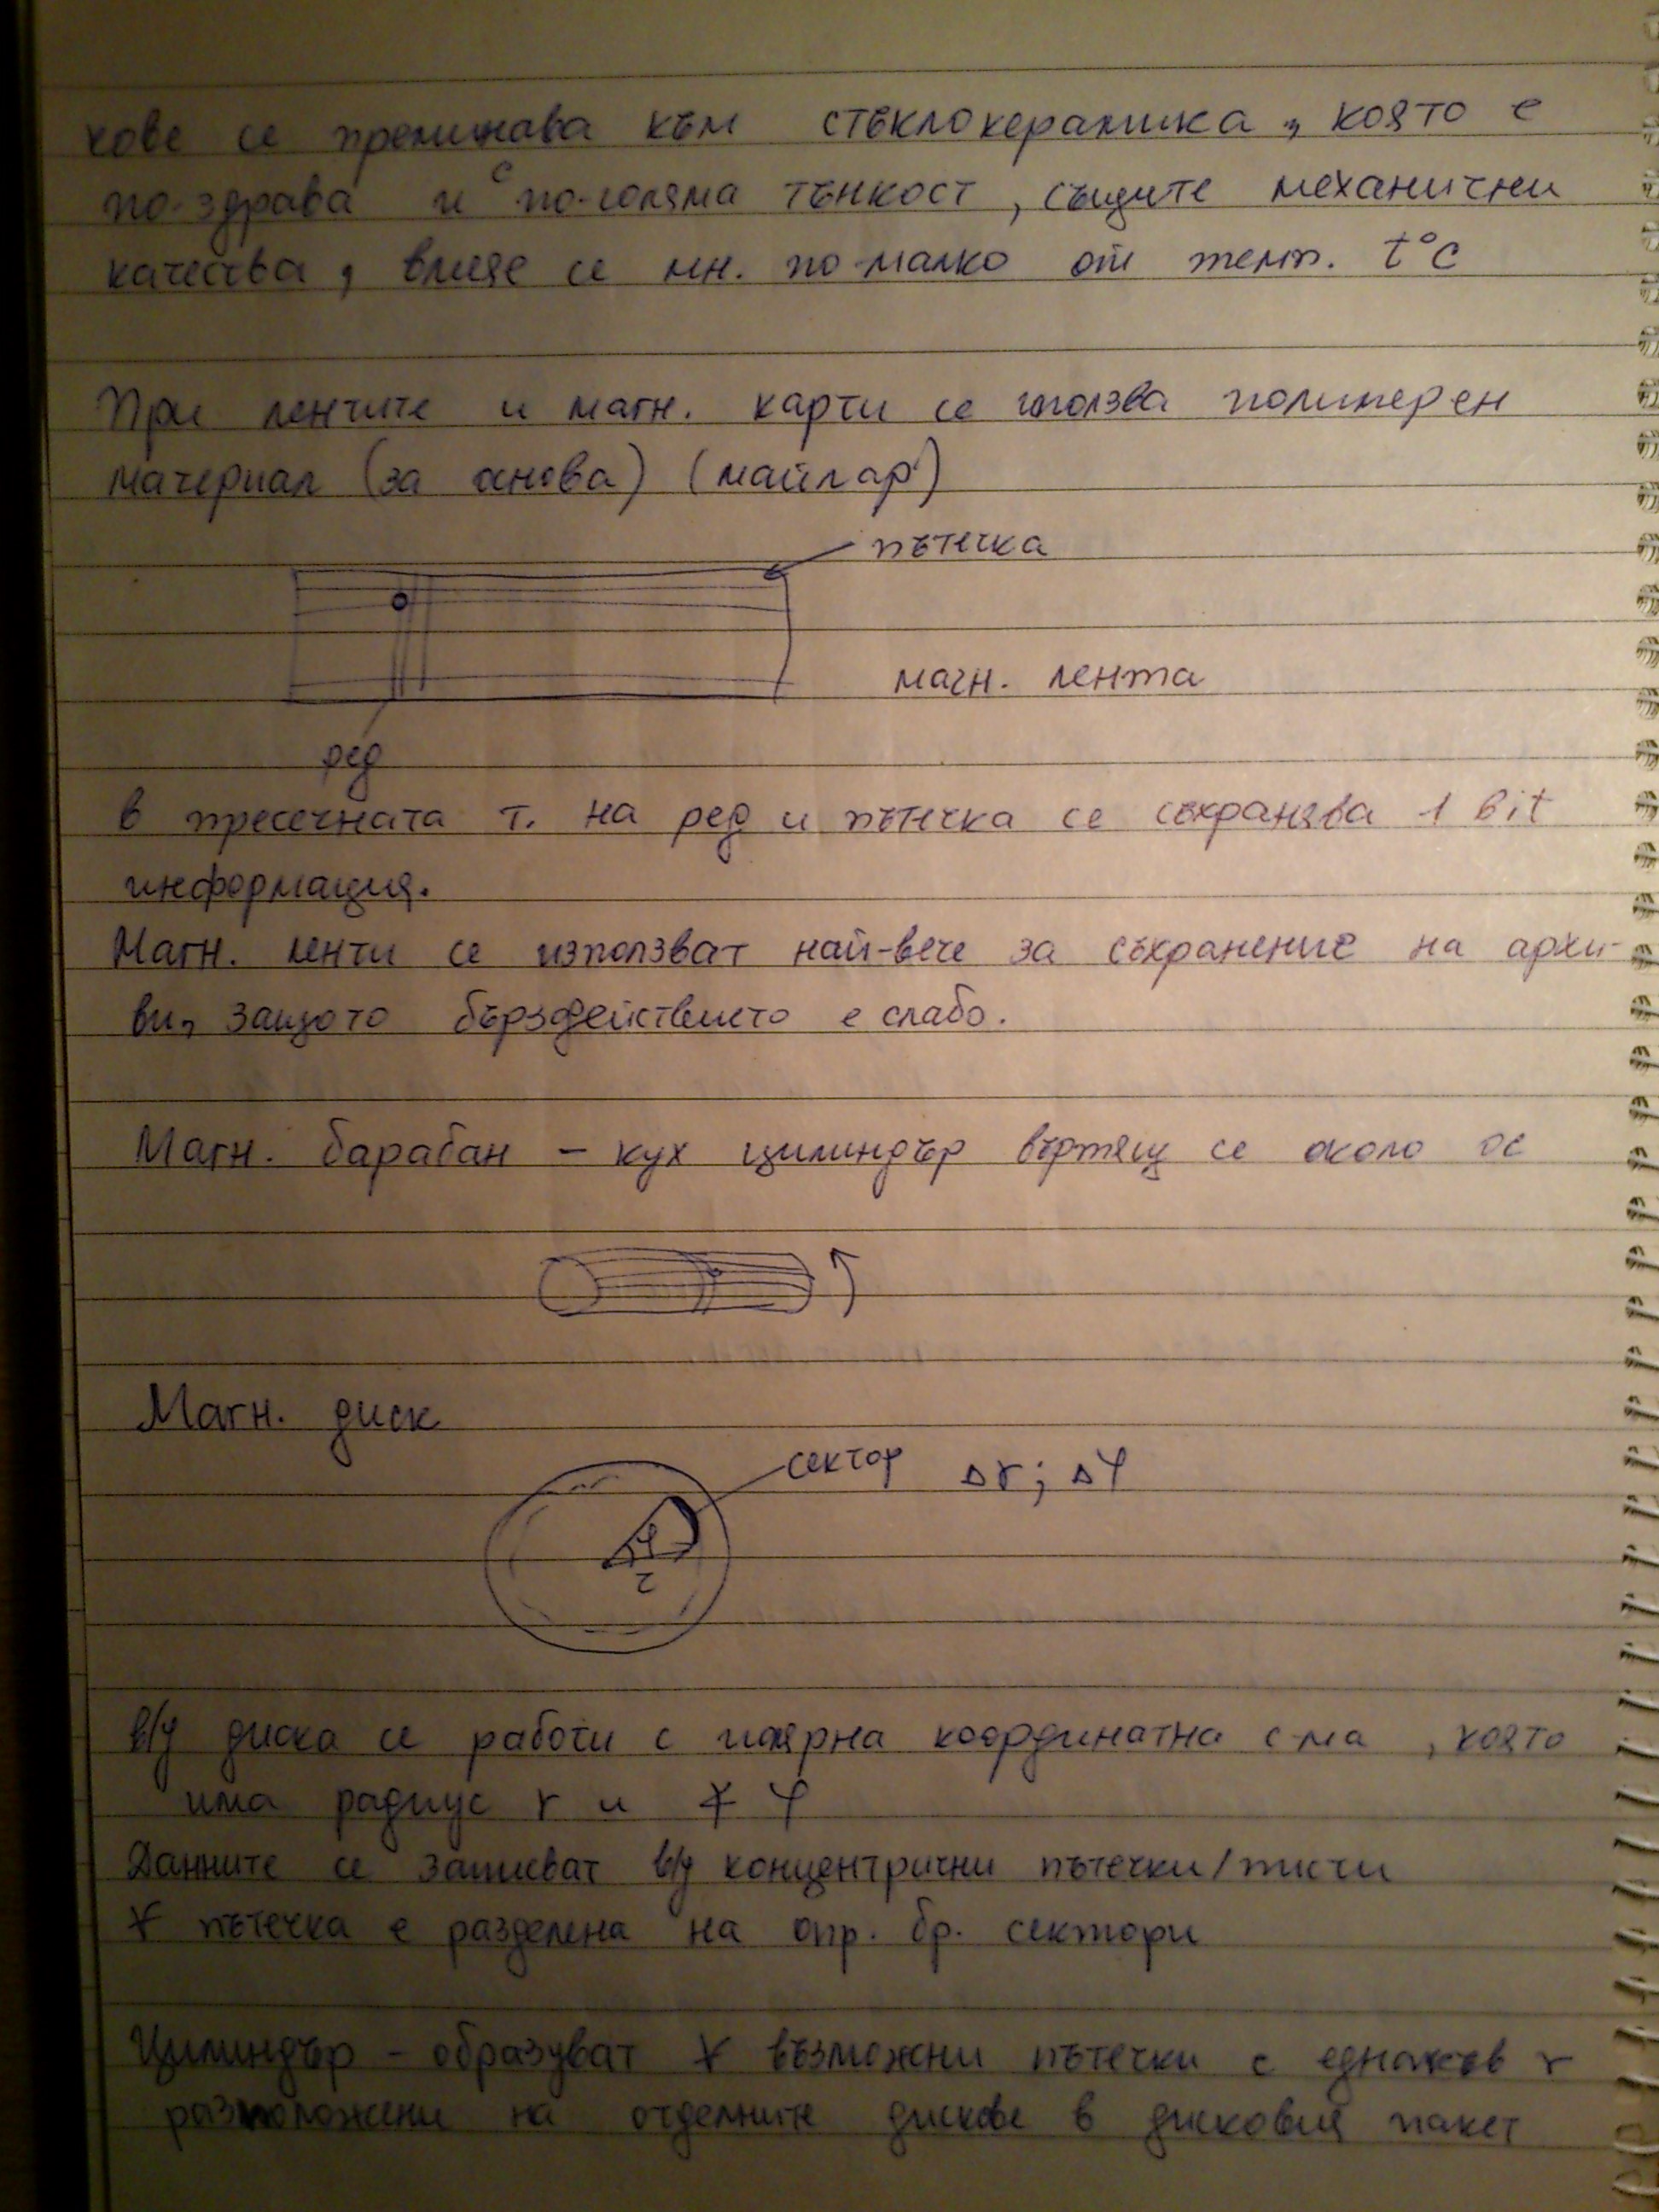 кове се преминава към стъклокерамика, която е
по-здрава и с по-голяма тънкост, същите механични
качества, влияе се мн. по-малко от темп. t°C
При лентите и магн. карти се използва полимерен
материал (за основа) (майлар)
пътечка
магн. лента
ред
в пресечната т. на ред и пътечка се съхранява 1 bit
информация.
Магн. ленти се използват най-вече за съхранение на архи-
ви, защото бързодействието е слабо.
Магн. барабан – кух цилиндър въртящ се около ос
Магн. диск
сектор Δr; Δφ
φ
r
в/у диска се работи с полярна координатна с-ма, която
има радиус r и ∢ φ
Данните се записват в/у концентрични пътечки/писти
∀ пътечка е разделена на опр. бр. сектори
Цилиндър – образуват ∀ възможни пътечки с еднакъв r
разположени на отделните дискове в дисковия пакет